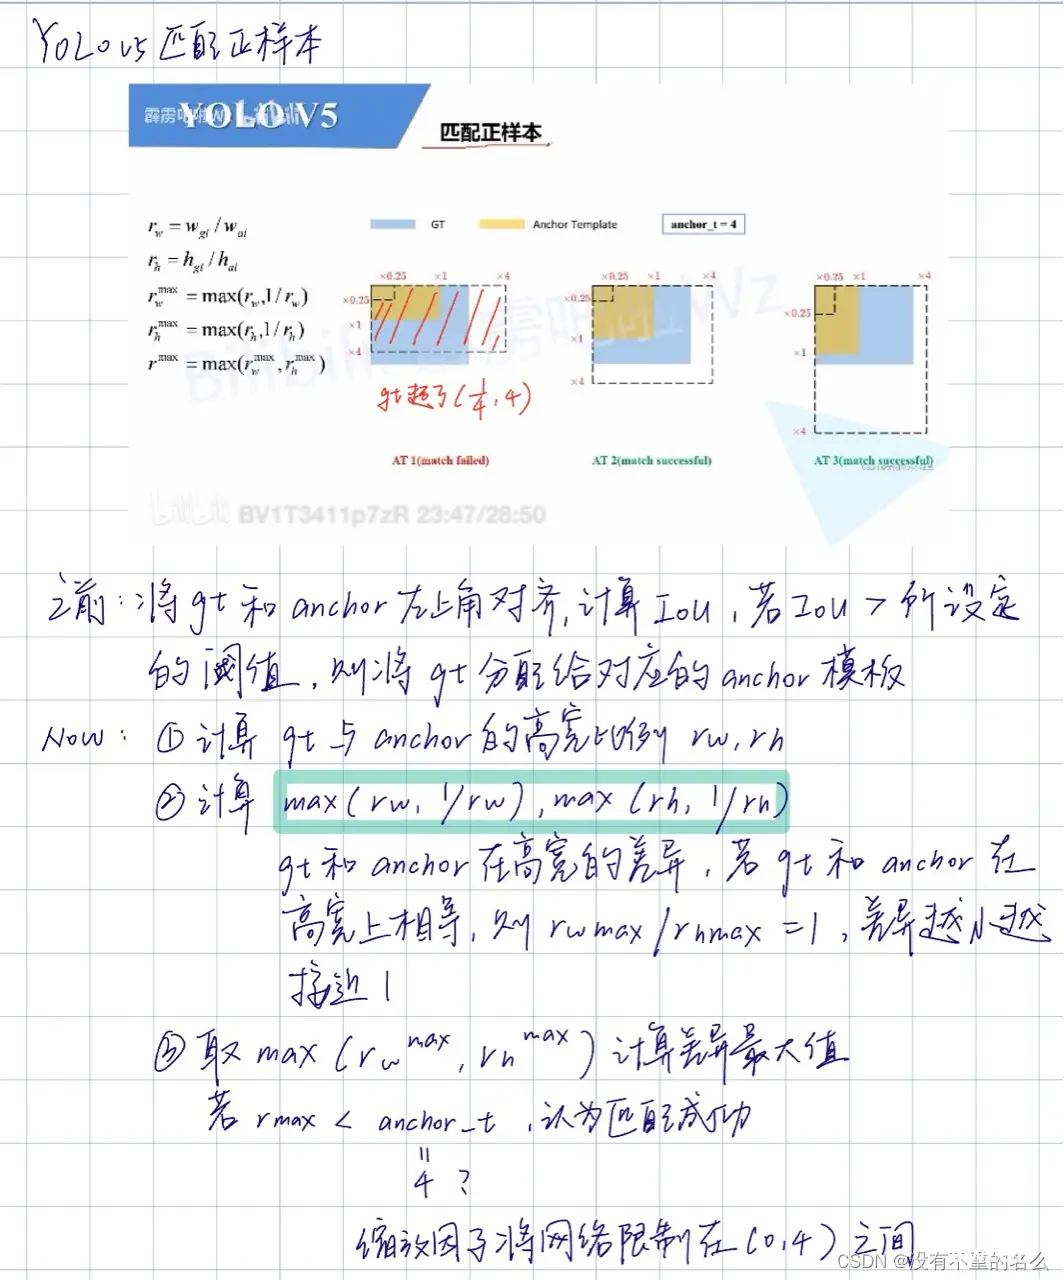 YOLOv5匹配正样本
霹雳吧啦Wz bilibili
YOLO V5
匹配正样本
r_w = w_gt / w_at
r_h = h_gt / h_at
r_w^max = max(r_w, 1/r_w)
r_h^max = max(r_h, 1/r_h)
r^max = max(r_w^max, r_h^max)
GT
Anchor Template
anchor_t = 4
×0.25 ×1 ×4
×0.25
×1
×4
×0.25 ×1 ×4
×0.25
×1
×4
×0.25 ×1 ×4
×0.25
×1
×4
gt超了(1/4, 4)
AT 1(match failed)
AT 2(match successful)
AT 3(match successful)
bilibili BV1T3411p7zR 23:47/28:50
之前：将gt和anchor左上角对齐,计算IoU，若IoU > 所设定
的阈值，则将gt分配给对应的anchor模板
Now：①计算gt与anchor的高宽比例rw,rh
②计算 max(rw, 1/rw),max(rh, 1/rh)
gt和anchor在高宽的差异，若gt和anchor在
高宽上相等，则rwmax/rhmax =1，差异越小越
接近1
③取max(rw^max, rh^max)计算差异最大值
若rmax < anchor_t，认为匹配成功
=
4？
缩放因子将网络限制在(0,4)之间
CSDN @没有不重的名么